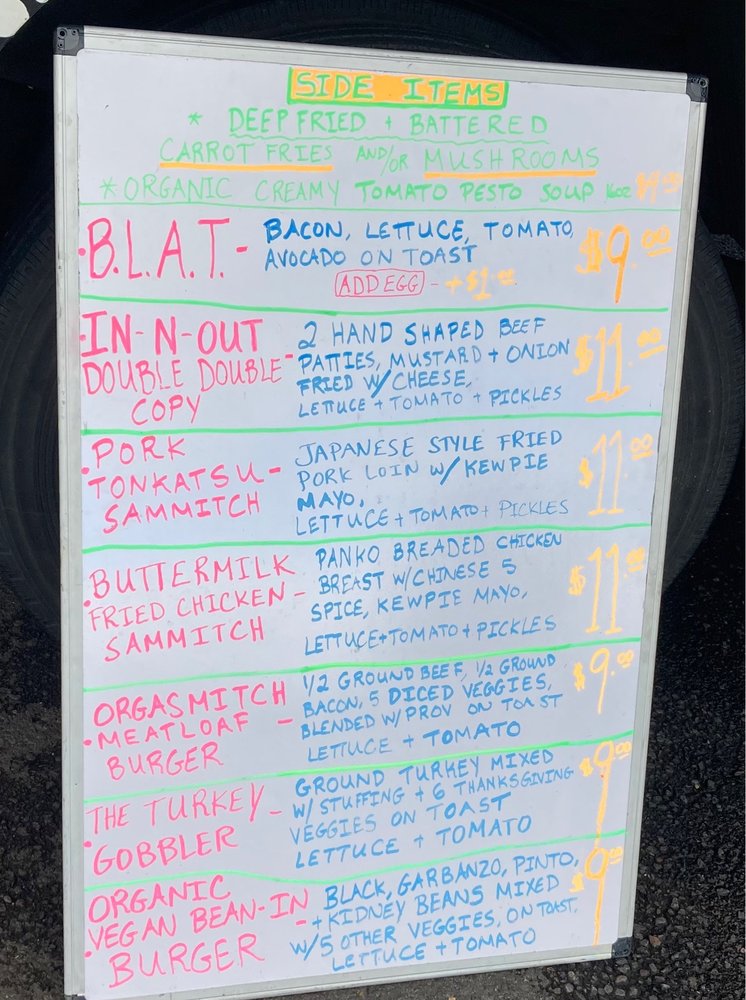 SIDE ITEMS
* DEEP FRIED + BATTERED
CARROT FRIES AND/OR MUSHROOMS
* ORGANIC CREAMY TOMATO PESTO SOUP 16oz
• B.L.A.T. - BACON, LETTUCE, TOMATO, $9.00
AVOCADO ON TOAST
ADD EGG - +$1.00
• IN-N-OUT
DOUBLE DOUBLE -
COPY
2 HAND SHAPED BEEF
PATTIES, MUSTARD + ONION
FRIED W/ CHEESE,
LETTUCE + TOMATO + PICKLES
$11.00
• PORK
TONKATSU -
SAMMITCH
JAPANESE STYLE FRIED
PORK LOIN W/ KEWPIE
MAYO,
LETTUCE + TOMATO + PICKLES
$11.00
BUTTERMILK
• FRIED CHICKEN -
SAMMITCH
PANKO BREADED CHICKEN
BREAST W/CHINESE 5
SPICE, KEWPIE MAYO,
LETTUCE + TOMATO + PICKLES
$11.00
ORGASMITCH
• MEATLOAF -
BURGER
1/2 GROUND BEEF, 1/2 GROUND
BACON, 5 DICED VEGGIES,
BLENDED W/ PROV ON TOAST
LETTUCE + TOMATO
$9.00
THE TURKEY -
• GOBBLER
GROUND TURKEY MIXED
W/ STUFFING + 6 THANKSGIVING
VEGGIES ON TOAST
LETTUCE + TOMATO
$9.00
ORGANIC
VEGAN BEAN-IN -
• BURGER
BLACK, GARBANZO, PINTO,
+ KIDNEY BEANS MIXED
W/ 5 OTHER VEGGIES, ON TOAST.
LETTUCE + TOMATO
$9.00